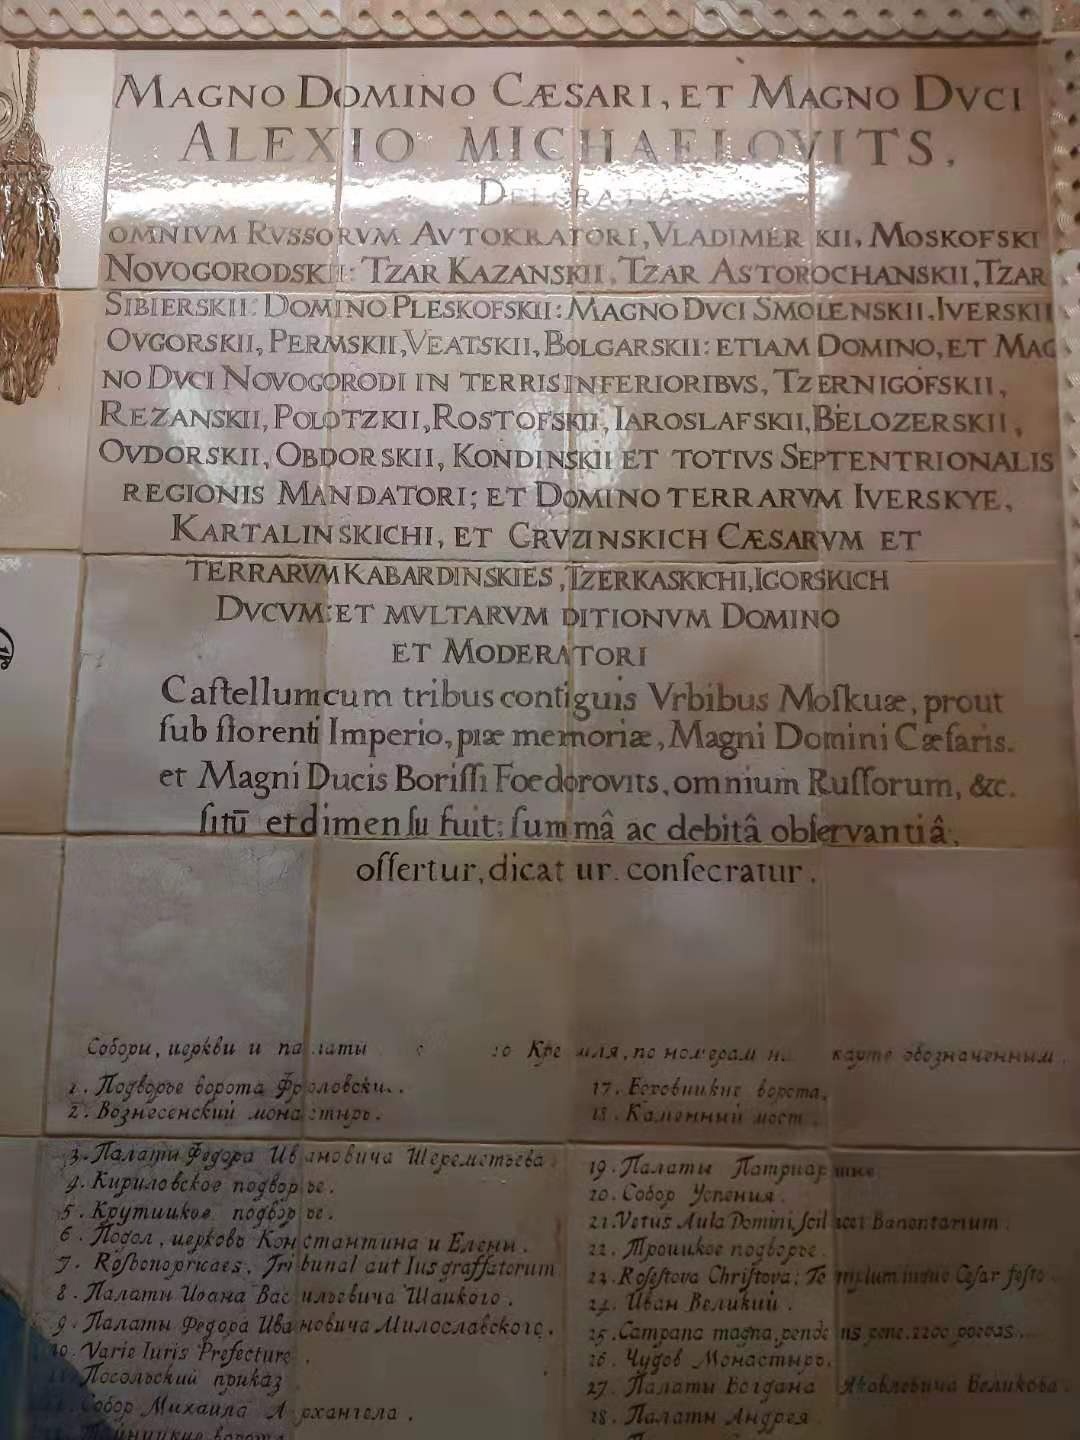 MAGNO DOMINO CÆSARI, ET MAGNO DVCI
ALEXIO MICHAELOVITS,
OMNIVM RVSSORVM AVTOKRATORI, VLADIMER KII, MOSKOFSKI
NOVOGORODSKII: TZAR KAZANSKII, TZAR ASTOROCHANSKII, TZAR
SIBIERSKII: DOMINO PLESKOFSKII: MAGNO DVCI SMOLENSKII, IVERSKII
OVGORSKII, PERMSKII, VEATSKII, BOLGARSKII: ETIAM DOMINO, ET MAG
NO DVCI NOVOGORODI IN TERRIS INFERIORIBVS, TZERNIGOFSKII,
REZANSKII, POLOTZKII, ROSTOFSKII, IAROSLAFSKII, BELOZERSKII,
OVDORSKII, OBDORSKII, KONDINSKII ET TOTIVS SEPTENTRIONALIS
REGIONIS MANDATORI; ET DOMINO TERRARVM IVERSKYE,
KARTALINSKICHI, ET GRVZINSKICH CÆSARVM ET
TERRARVM KABARDINSKIES, TZERKASKICHI, IGORSKICH
DVCVM: ET MVLTARVM DITIONVM DOMINO
ET MODERATORI
Caſtellum cum tribus contiguis Vrbibus Moſkuæ, prout
ſub florenti Imperio, piæ memoriæ, Magni Domini Cæſaris.
et Magni Ducis Boriſſi Foedorovits, omnium Ruſſorum, &c.
ſitū et dimenſu fuit: ſummâ ac debitâ obſervantiâ,
offertur, dicat ur. conſecratur.
Соборы, церкви и палаты Кремля, по номерам на карте обозначенным.
1. Подворье ворота Фроловски..
2. Вознесенский монастырь.
3. Палаты Федора Ивановича Шереметьева.
4. Кириловское подворье.
5. Крутицкое подворье.
6. Подол, церковь Константина и Елены.
7. Roſbonopricaes, Tribunal aut Ius graſſatorum
8. Палаты Иоана Васильевича Шацкого.
9. Палаты Федора Ивановича Милославского.
10. Varie Iuris Prefecture.
11. Посольский приказ
12. Собор Михаила Архангела.
ворота
17. Боровицкие ворота.
18. Каменный мост.
19. Палаты Патриаршие
20. Собор Успения.
21. Vetus Aula Domini, ſcilicet Banontarium.
22. Троицкое подворье.
23. Roſeſtova Chriſtova; Templum inquo Ceſar feſto
24. Иван Великий.
25. Campana magna, pendens pene. 2200 poevas.
26. Чудов Монастырь.
27. Палаты Богдана Яковлевича Великова.
28. Палаты Андрея